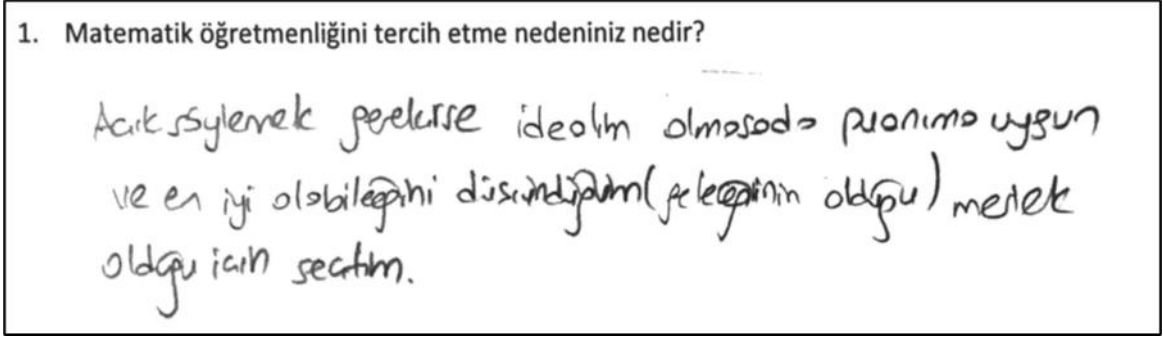 1. Matematik öğretmenliğini tercih etme nedeniniz nedir?
Açık söylemek gerekirse idealim olmasada puanıma uygun
ve en iyi olabileceğini düşündüğüm (geleceğinin olduğu) meslek
olduğu için seçtim.